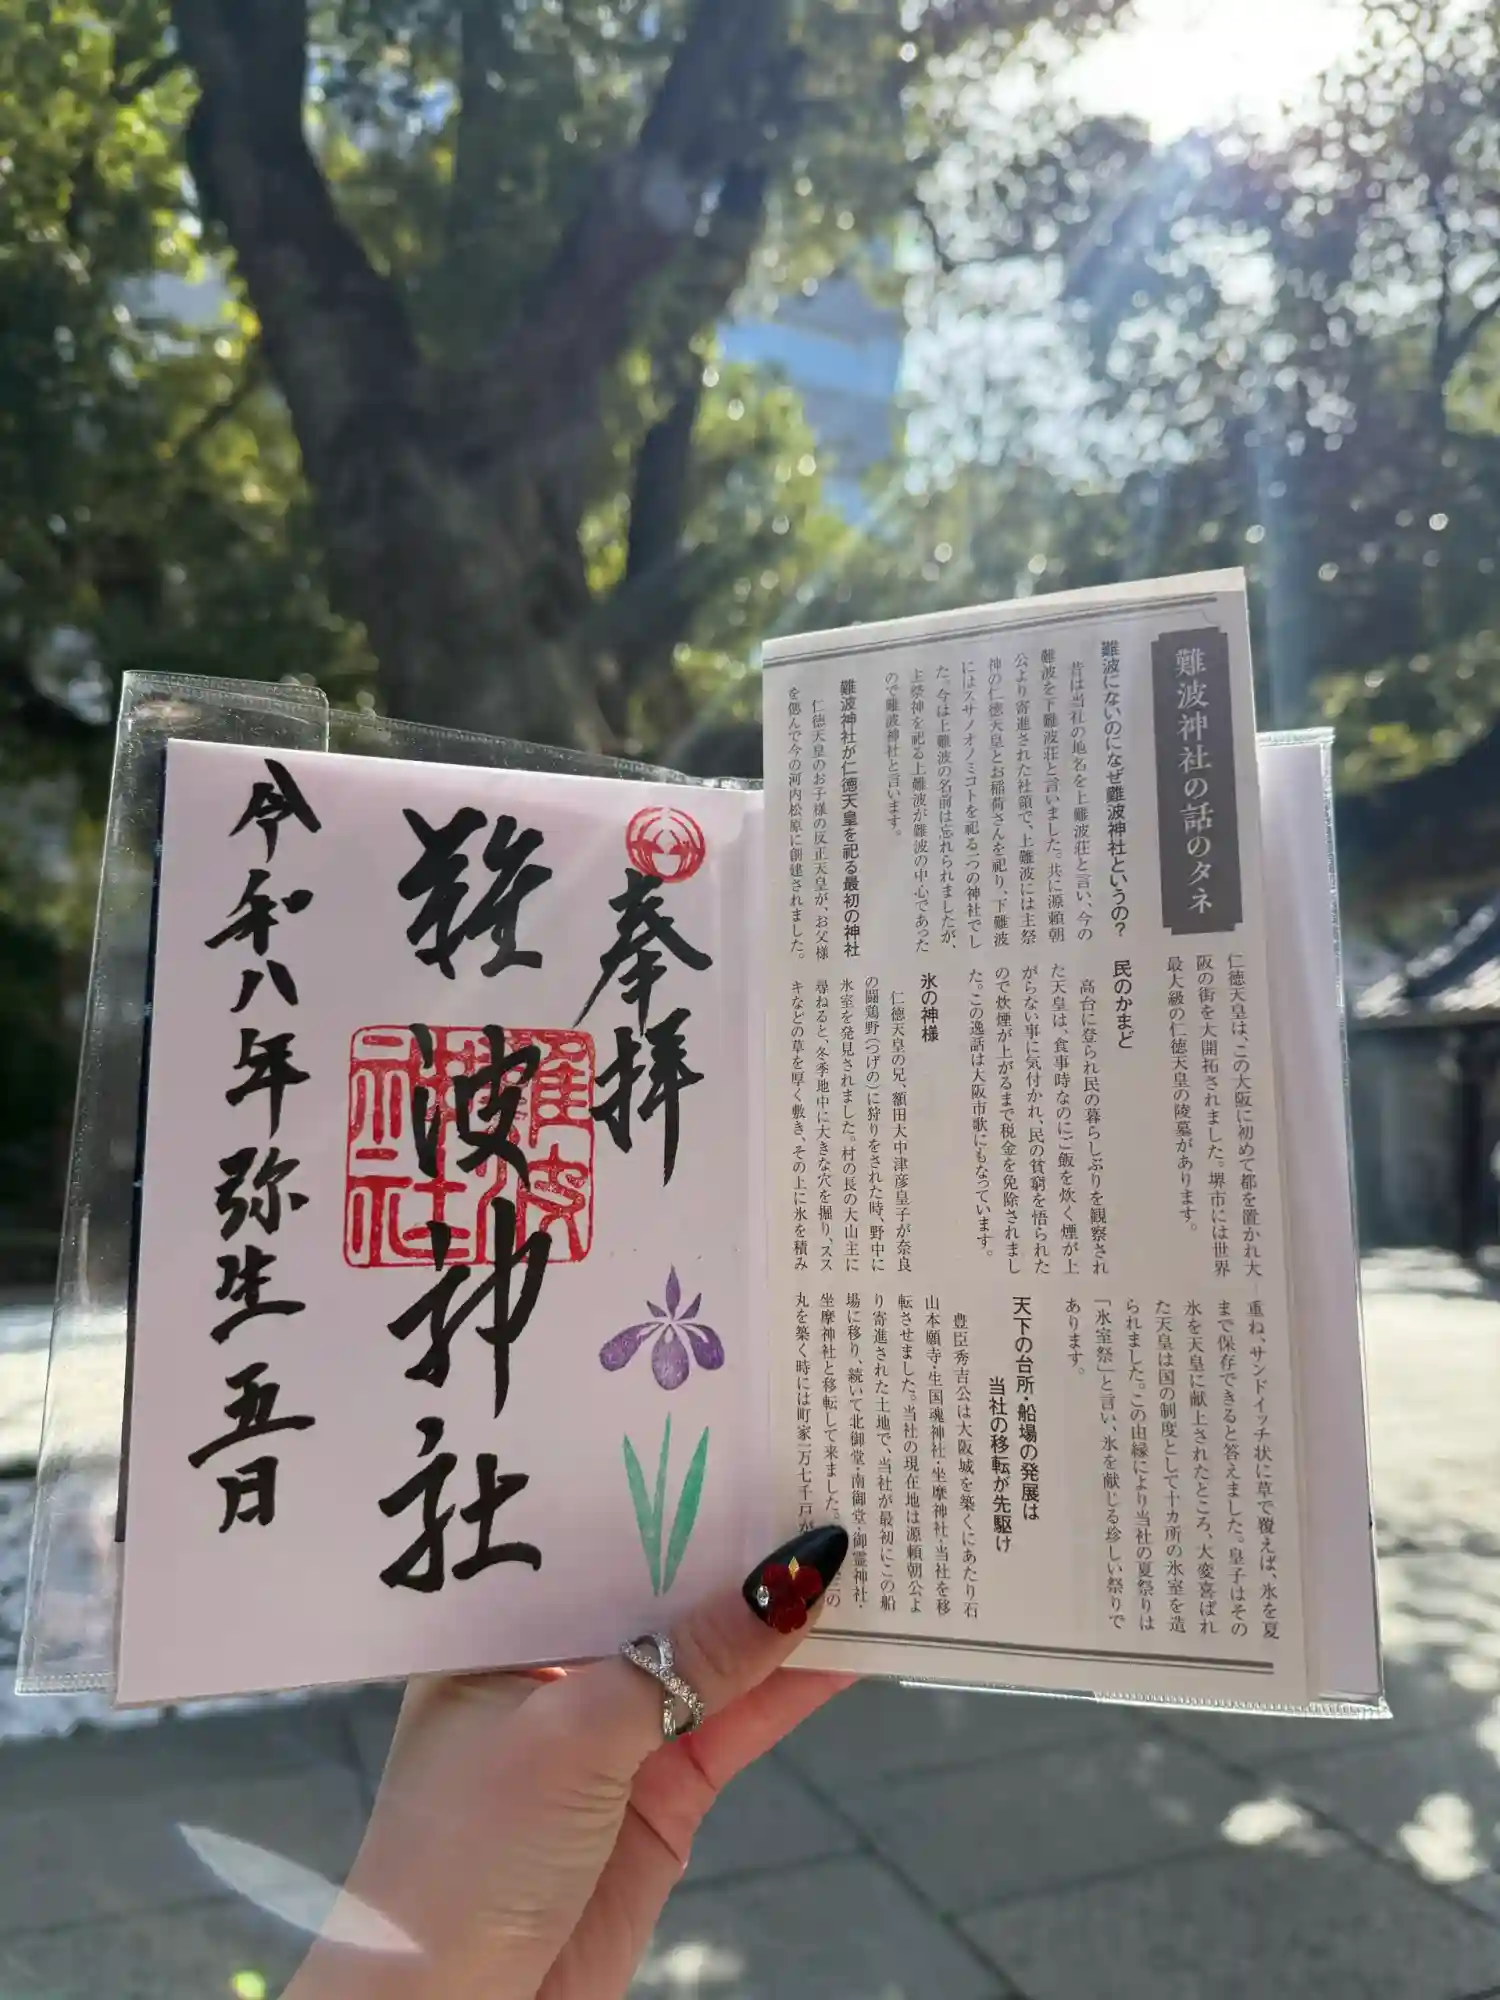 奉拝
難波神社
難波神社
令和八年弥生五日
難波神社の話のタネ
難波にないのになぜ難波神社というの?
昔は当社の地名を上難波荘と言い、今の
難波を下難波荘と言いました。共に源頼朝
公より寄進された社領で、上難波には主祭
神の仁徳天皇とお稲荷さんを祀り、下難波
にはスサノオノミコトを祀る二つの神社でし
た。今は上難波の名前は忘れられましたが、
主祭神を祀る上難波が難波の中心であった
ので難波神社と言います。
難波神社が仁徳天皇を祀る最初の神社
仁徳天皇のお子様の反正天皇が、お父様
を偲んで今の河内松原に創建されました。
仁徳天皇は、この大阪に初めて都を置かれ大
阪の街を大開拓されました。堺市には世界
最大級の仁徳天皇の陵墓があります。
民のかまど
高台に登られ民の暮らしぶりを観察され
た天皇は、食事時なのにご飯を炊く煙が上
がらない事に気付かれ、民の貧窮を悟られた
ので炊煙が上がるまで税金を免除されまし
た。この逸話は大阪市歌にもなっています。
氷の神様
仁徳天皇の兄、額田大中津彦皇子が奈良
の闘鶏野(つげの)に狩りをされた時、野中に
氷室を発見されました。村の長の大山主に
尋ねると、冬季地中に大きな穴を掘り、スス
キなどの草を厚く敷き、その上に氷を積み
重ね、サンドイッチ状に草で覆えば、氷を夏
まで保存できると答えました。皇子はその
氷を天皇に献上されたところ、大変喜ばれ
た天皇は国の制度として十カ所の氷室を造
られました。この由縁により当社の夏祭りは
「氷室祭」と言い、氷を献じる珍しい祭りで
あります。
天下の台所・船場の発展は
当社の移転が先駆け
豊臣秀吉公は大阪城を築くにあたり石
山本願寺・生国魂神社・坐摩神社・当社を移
転させました。当社の現在地は源頼朝公よ
り寄進された土地で、当社が最初にこの船
場に移り、続いて北御堂・南御堂・御霊神社・
坐摩神社と移転して来ました。
丸を築く時には町家一万七千戸が